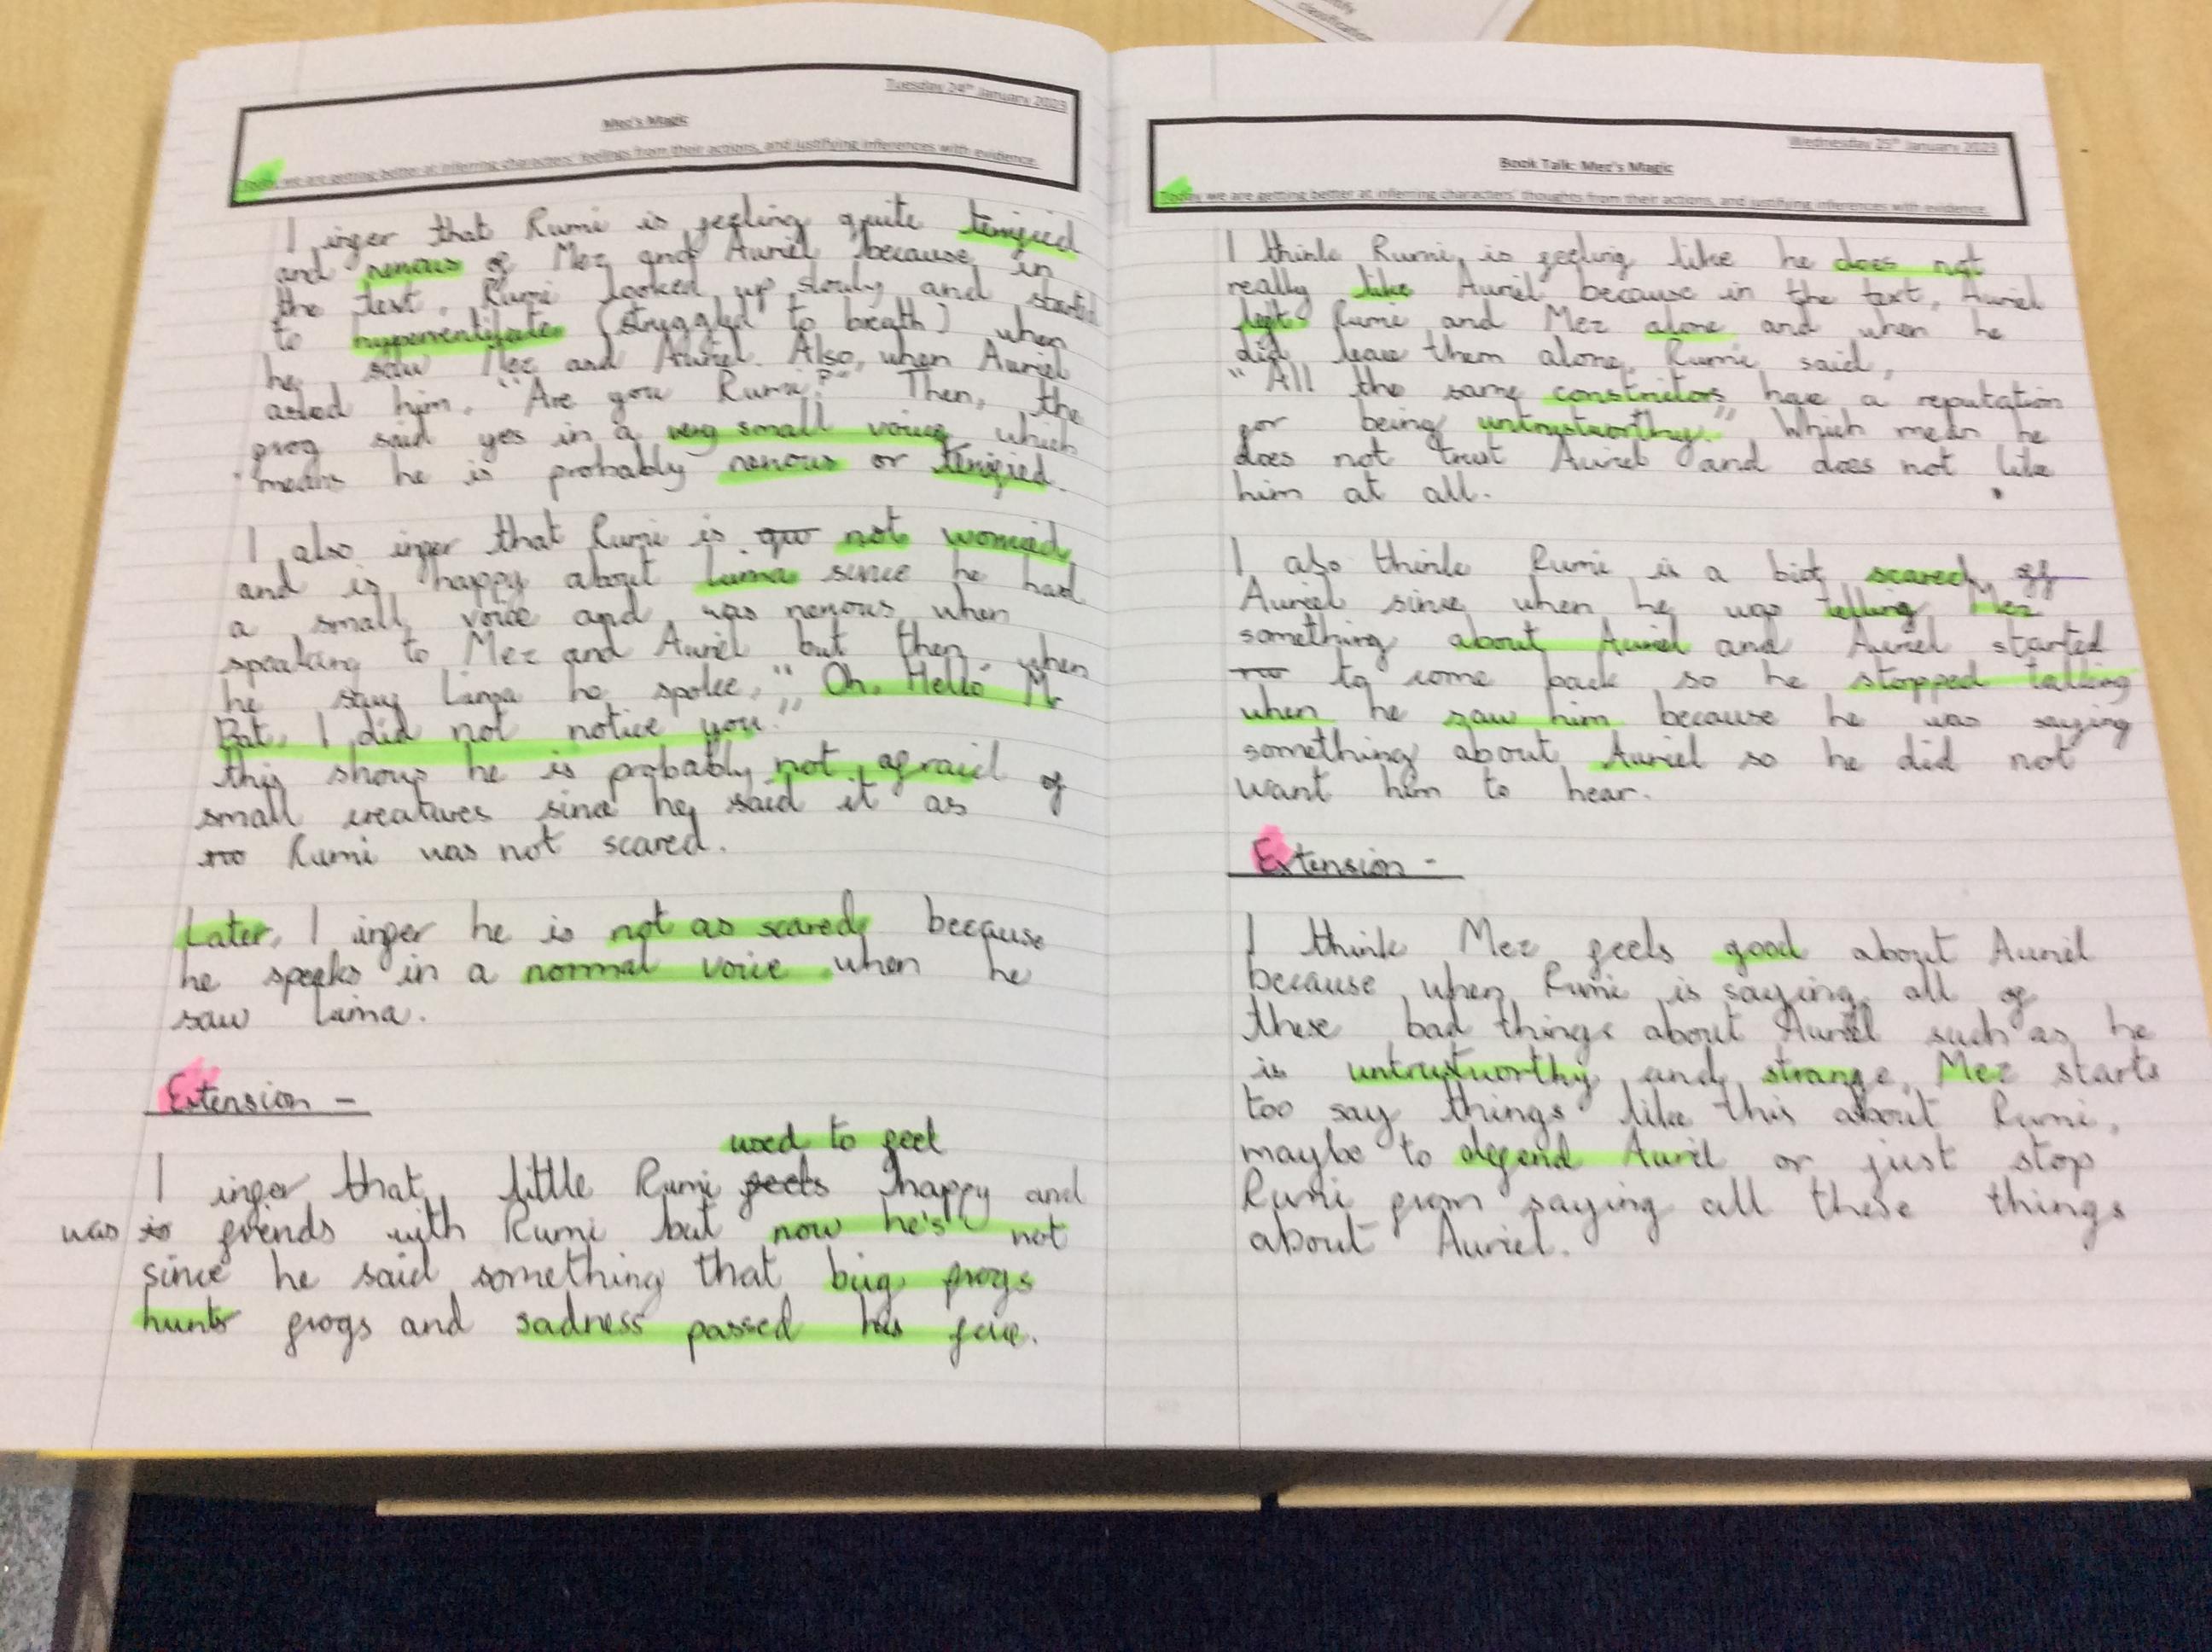 classification
Tuesday 24th January 2023
Mez's Magic
Today we are getting better at inferring characters' feelings from their actions, and justifying inferences with evidence.
I infer that Rumi is feeling quite terrified
and nervous of Mez and Auriel because in
the text, Rumi looked up slowly and started
to hyperventilate (struggled to breath) when
he saw Mez and Auriel. Also, when Auriel
asked him, "Are you Rumi?" Then, the
frog said yes in a very small voice which
means he is probably nervous or terrified.
I also infer that Rumi is not worried
and is happy about Lima since he had
a small voice and was nervous when
speaking to Mez and Auriel but then when
he saw Lima he spoke, "Oh, Hello Mr
Bat, I did not notice you."
this shows he is probably not afraid of
small creatures since he said it as
too Rumi was not scared.
Later, I infer he is not as scared because
he speaks in a normal voice when he
saw Lima.
Extension -
used to feel
I infer that little Rumi feels happy and
was is friends with Rumi but now he's not
since he said something that big frogs
hunts frogs and sadness passed his face.
Wednesday 25th January 2023
Book Talk: Mez's Magic
Today we are getting better at inferring characters' thoughts from their actions, and justifying inferences with evidence.
I think Rumi is feeling like he does not
really like Auriel because in the text, Auriel
left Rumi and Mez alone and when he
did leave them alone, Rumi said,
"All the same constrictors have a reputation
for being untrustworthy." Which mean he
does not trust Auriel and does not like
him at all.
I also think Rumi is a bit scared of
Auriel since when he was telling Mez
something about Auriel and Auriel started
too to come back so he stopped talking
when he saw him because he was saying
something about Auriel so he did not
want him to hear.
Extension -
I think Mez feels good about Auriel
because when Rumi is saying all of
these bad things about Auriel such as he
is untrustworthy and strange, Mez starts
too say things like this about Rumi,
maybe to defend Auriel or just stop
Rumi from saying all these things
about Auriel.